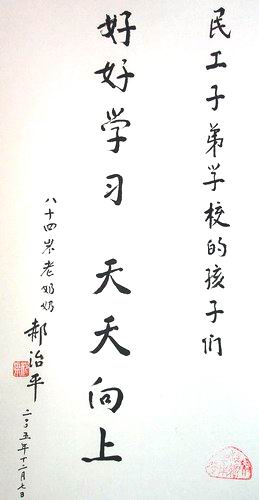 民工子弟学校的孩子们
好好学习 天天向上
八十四岁老奶奶
郝治平
二〇〇五年十二月七日